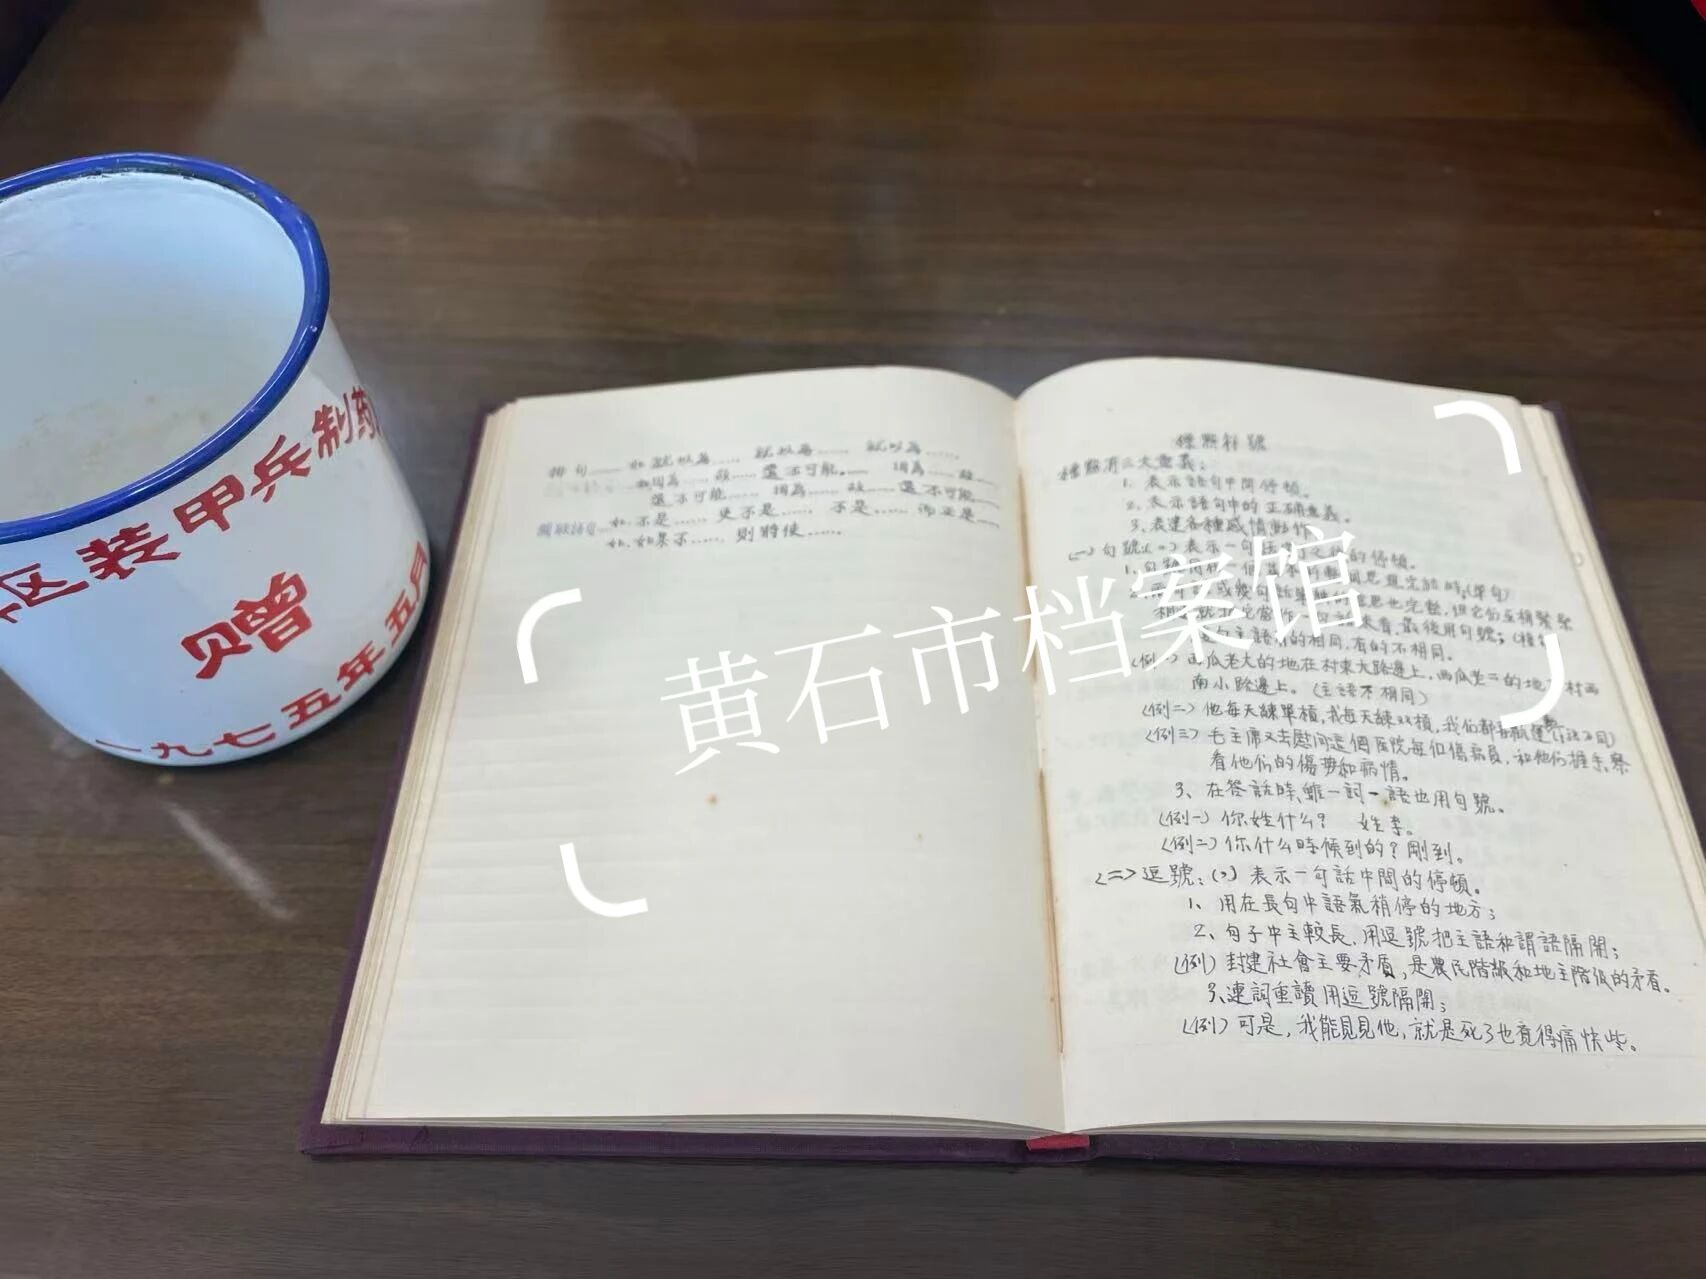 区装甲兵制药
赠
一九七五年五月
排句……如就以為……就以為……就以為……
如因為……故……還不可能……因為……故……
還不可能……因為……故……還不可能……
如.不是……更不是……不是……而正是……
如.如果不……則將使……
標點符號
標點有三大意義：
1. 表示語句中間停頓。
2. 表示語句中的正確意義。
3. 表達各種感情動作
(一)句號(。)表示一句話完了之後的停頓。
思想完結時；(單句)
意思也完整，但它们互相緊密
來看，最後用句號；
主語有的相同，有的不相同。
(例一)西瓜老大的地在村東大路邊上，西瓜老二的地在村西
南小路邊上。(主語不相同)
(例二)他每天練單槓，我每天練双槓，我们都
(例三)毛主席又去慰问這個医院每位傷病員，和他们握手，察
看他们的傷势和病情。
3、在答話時，雖一詞一語也用句號。
(例一)你姓什么？ 姓李。
(例二)你什么時候到的？剛到。
(二)逗號：(，)表示一句話中間的停頓。
1、用在長句中語氣稍停的地方；
2、句子中主較長，用逗號把主語和謂語隔開；
(例)封建社會主要矛盾，是農民階級和地主階级的矛盾。
3、連詞重讀用逗號隔開；
(例)可是，我能見見他，就是死了也覚得痛快些。
黄石市档案馆